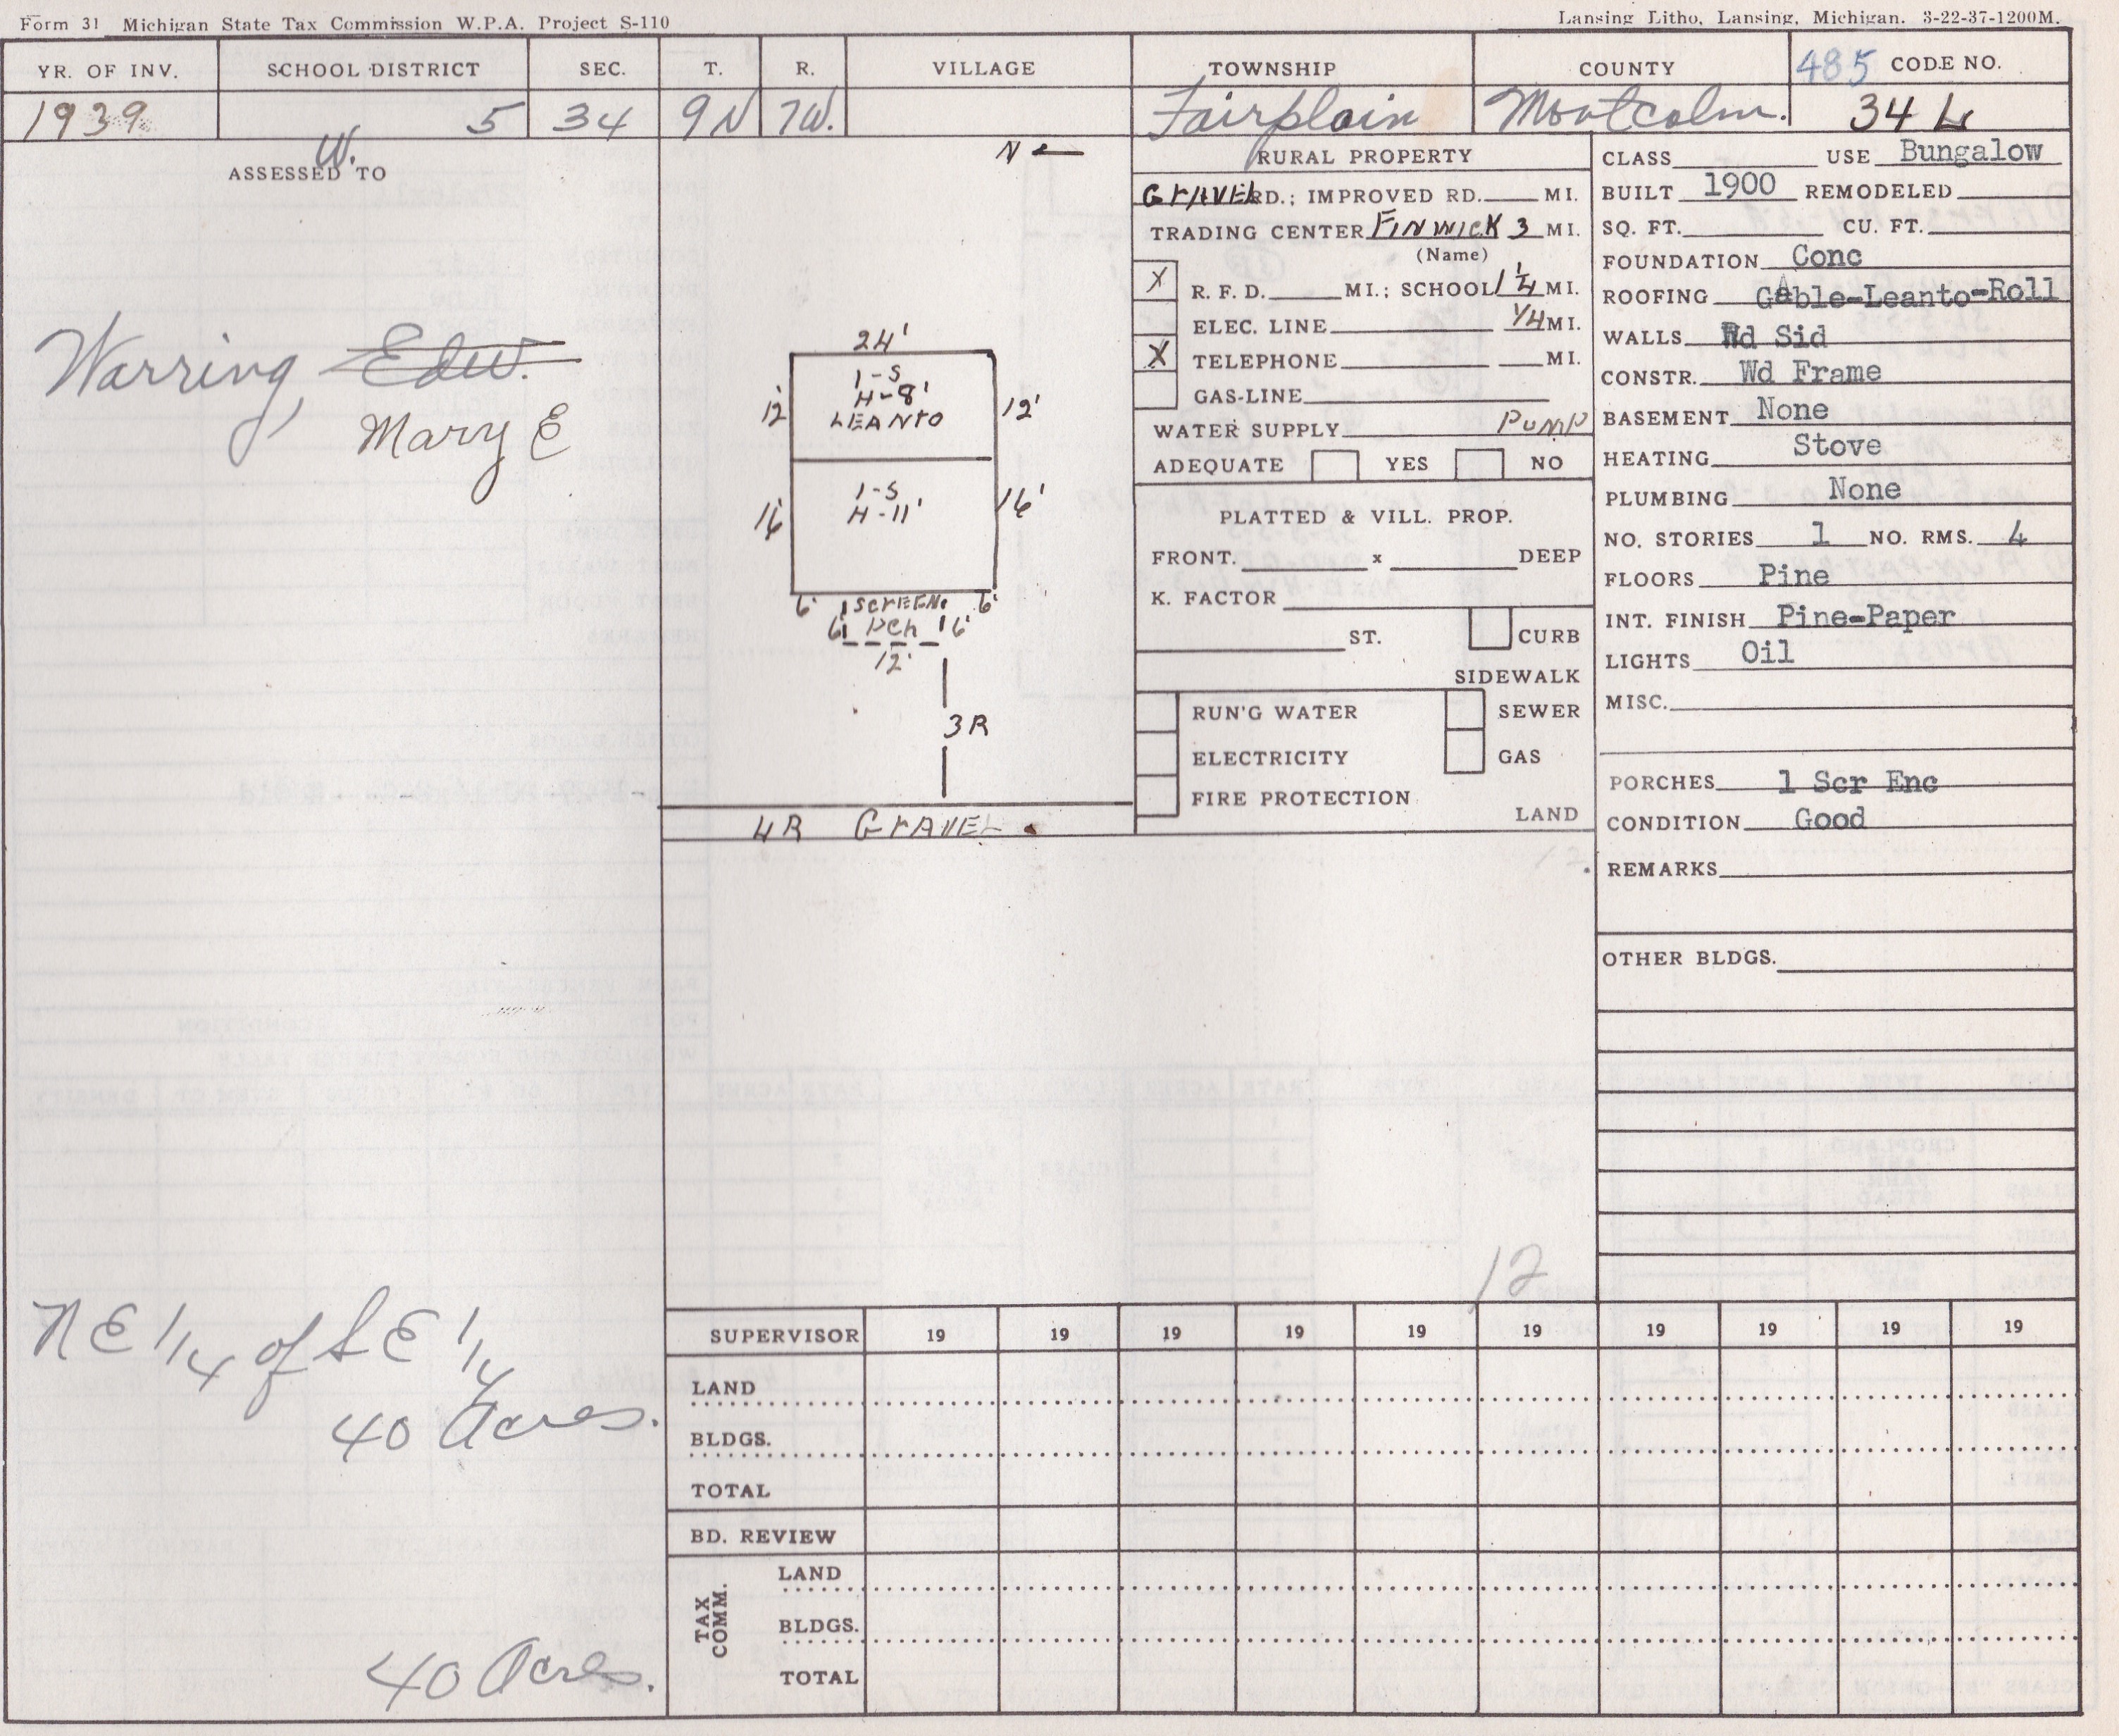 Form 31 Michigan State Tax Commission W.P.A. Project S-110
Lansing Litho, Lansing, Michigan. 3-22-37-1200M.
YR. OF INV. SCHOOL DISTRICT SEC. T. R. VILLAGE TOWNSHIP COUNTY 485 CODE NO.
1939 5 34 9N 7W. Fairplain Montcalm. 34 L
W.
ASSESSED TO
Warring, Edw.
Mary E
NE 1/4 of SE 1/4
40 Acres.
40 Acres.
N ←
24'
1-S
H-8'
LEANTO
12 12'
1-S
H-11'
16' 16'
6' SCREEN 6'
6' PCH 6'
12'
3R
4R GRAVEL
RURAL PROPERTY
GRAVEL RD.; IMPROVED RD. MI.
TRADING CENTER FINWICK 3 MI.
(Name)
X R. F. D. MI.; SCHOOL 1 1/4 MI.
ELEC. LINE 1/4 MI.
X TELEPHONE MI.
GAS-LINE
WATER SUPPLY PUMP
ADEQUATE YES NO
PLATTED & VILL. PROP.
FRONT. x DEEP
K. FACTOR
ST. CURB
SIDEWALK
RUN'G WATER SEWER
ELECTRICITY GAS
FIRE PROTECTION
LAND
CLASS USE Bungalow
BUILT 1900 REMODELED
SQ. FT. CU. FT.
FOUNDATION Conc
ROOFING Gable-Leanto-Roll
WALLS Wd Sid
CONSTR. Wd Frame
BASEMENT None
HEATING Stove
PLUMBING None
NO. STORIES 1 NO. RMS. 4
FLOORS Pine
INT. FINISH Pine-Paper
LIGHTS Oil
MISC.
PORCHES 1 Scr Enc
CONDITION Good
REMARKS
OTHER BLDGS.
12
SUPERVISOR 19 19 19 19 19 19 19 19 19 19
LAND
BLDGS.
TOTAL
BD. REVIEW
TAX COMM.
LAND
BLDGS.
TOTAL